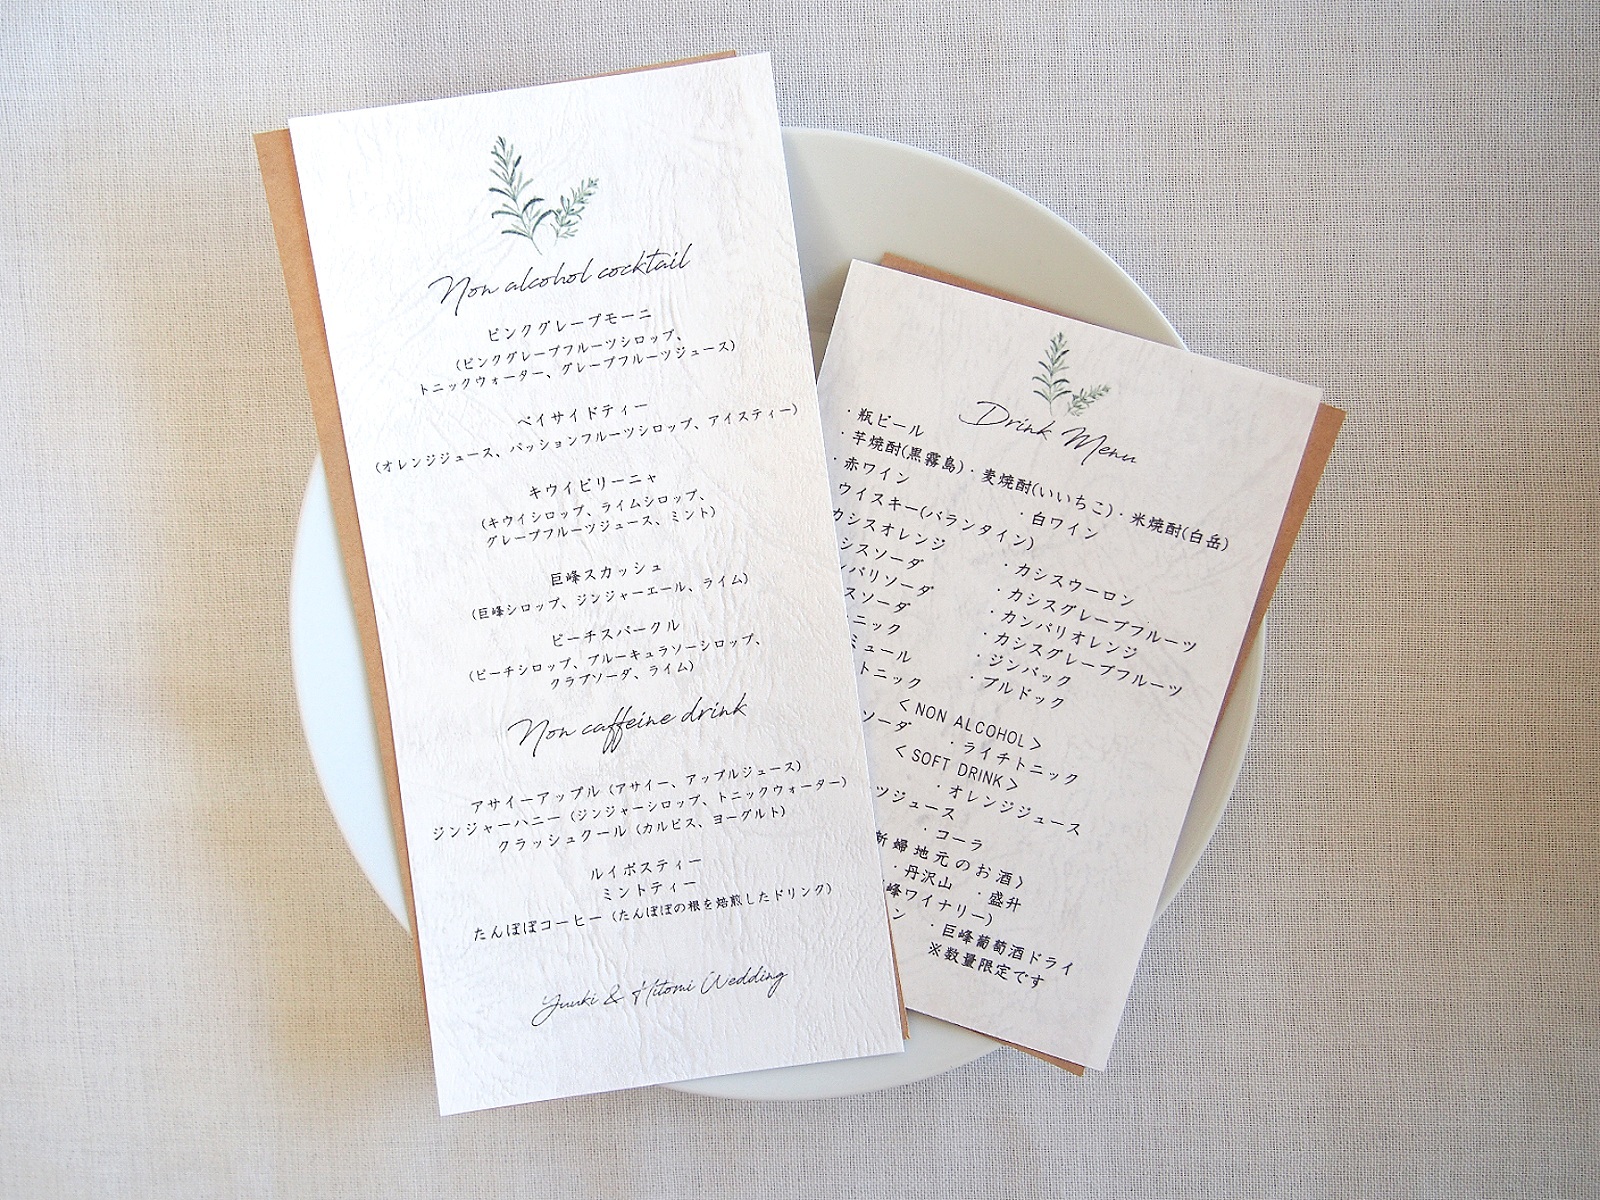 Non alcohol cocktail
ピンクグレープモーニ
(ピンクグレープフルーツシロップ、
トニックウォーター、グレープフルーツジュース)
ベイサイドティー
(オレンジジュース、パッションフルーツシロップ、アイスティー)
キウイピリーニャ
(キウイシロップ、ライムシロップ、
グレープフルーツジュース、ミント)
巨峰スカッシュ
(巨峰シロップ、ジンジャーエール、ライム)
ピーチスパークル
(ピーチシロップ、ブルーキュラソーシロップ、
クラブソーダ、ライム)
Non caffeine drink
アサイーアップル (アサイー、アップルジュース)
ジンジャーハニー (ジンジャーシロップ、トニックウォーター)
クラッシュクール (カルピス、ヨーグルト)
ルイボスティー
ミントティー
たんぽぽコーヒー (たんぽぽの根を焙煎したドリンク)
Yuuki & Hitomi Wedding
Drink Menu
・瓶ビール
・芋焼酎(黒霧島)・麦焼酎(いいちこ)・米焼酎(白岳)
・赤ワイン ・白ワイン
ウイスキー(バランタイン)
カシスオレンジ ・カシスウーロン
シスソーダ ・カシスグレープフルーツ
ンパリソーダ ・カンパリオレンジ
スソーダ ・カシスグレープフルーツ
ニック ・ジンバック
ミュール ・ブルドック
トニック
<NON ALCOHOL>
ソーダ ・ライチトニック
<SOFT DRINK>
・オレンジジュース
ツジュース
ス ・コーラ
新婦地元のお酒>
・丹沢山 ・盛升
峰ワイナリー)
ン ・巨峰葡萄酒ドライ
※数量限定です